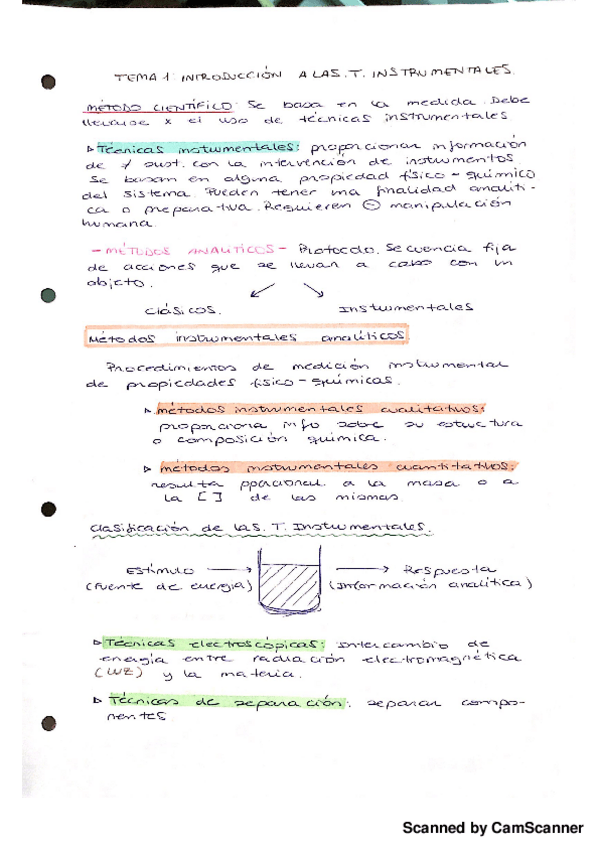 TEMA 1: INTRODUCCIÓN A LAS. T. INSTRUMENTALES.
MÉTODO CIENTÍFICO: Se basa en la medida. Debe
llevarse x el uso de técnicas instrumentales
▷ Técnicas instrumentales: proporcionan información
de ≠ sust. con la intervención de instrumentos.
Se basan en alguna propiedad físico-químico
del sistema. Pueden tener una finalidad analíti-
ca o preparativa. Requieren ⊖ manipulación
humana.
- MÉTODOS ANALÍTICOS - Protocolo. Secuencia fija
de acciones que se llevan a cabo con un
objeto.
Clásicos. Instrumentales
Métodos instrumentales analíticos
Procedimientos de medición instrumental
de propiedades físico-químicas.
▷ métodos instrumentales cualitativos:
proporciona info sobre su estructura
o composición química.
▷ métodos instrumentales cuantitativos:
resulta pporcional. a la masa o a
la [ ] de las mismas.
Clasificación de las. T. Instrumentales.
Estímulo → → Respuesta
(Fuente de energía) (Información analítica)
▷ Técnicas electroscópicas: Intercambio de
energía entre radiación electromagnética
(LUZ) y la materia.
▷ Técnicas de separación: separar compo-
nentes
Scanned by CamScanner